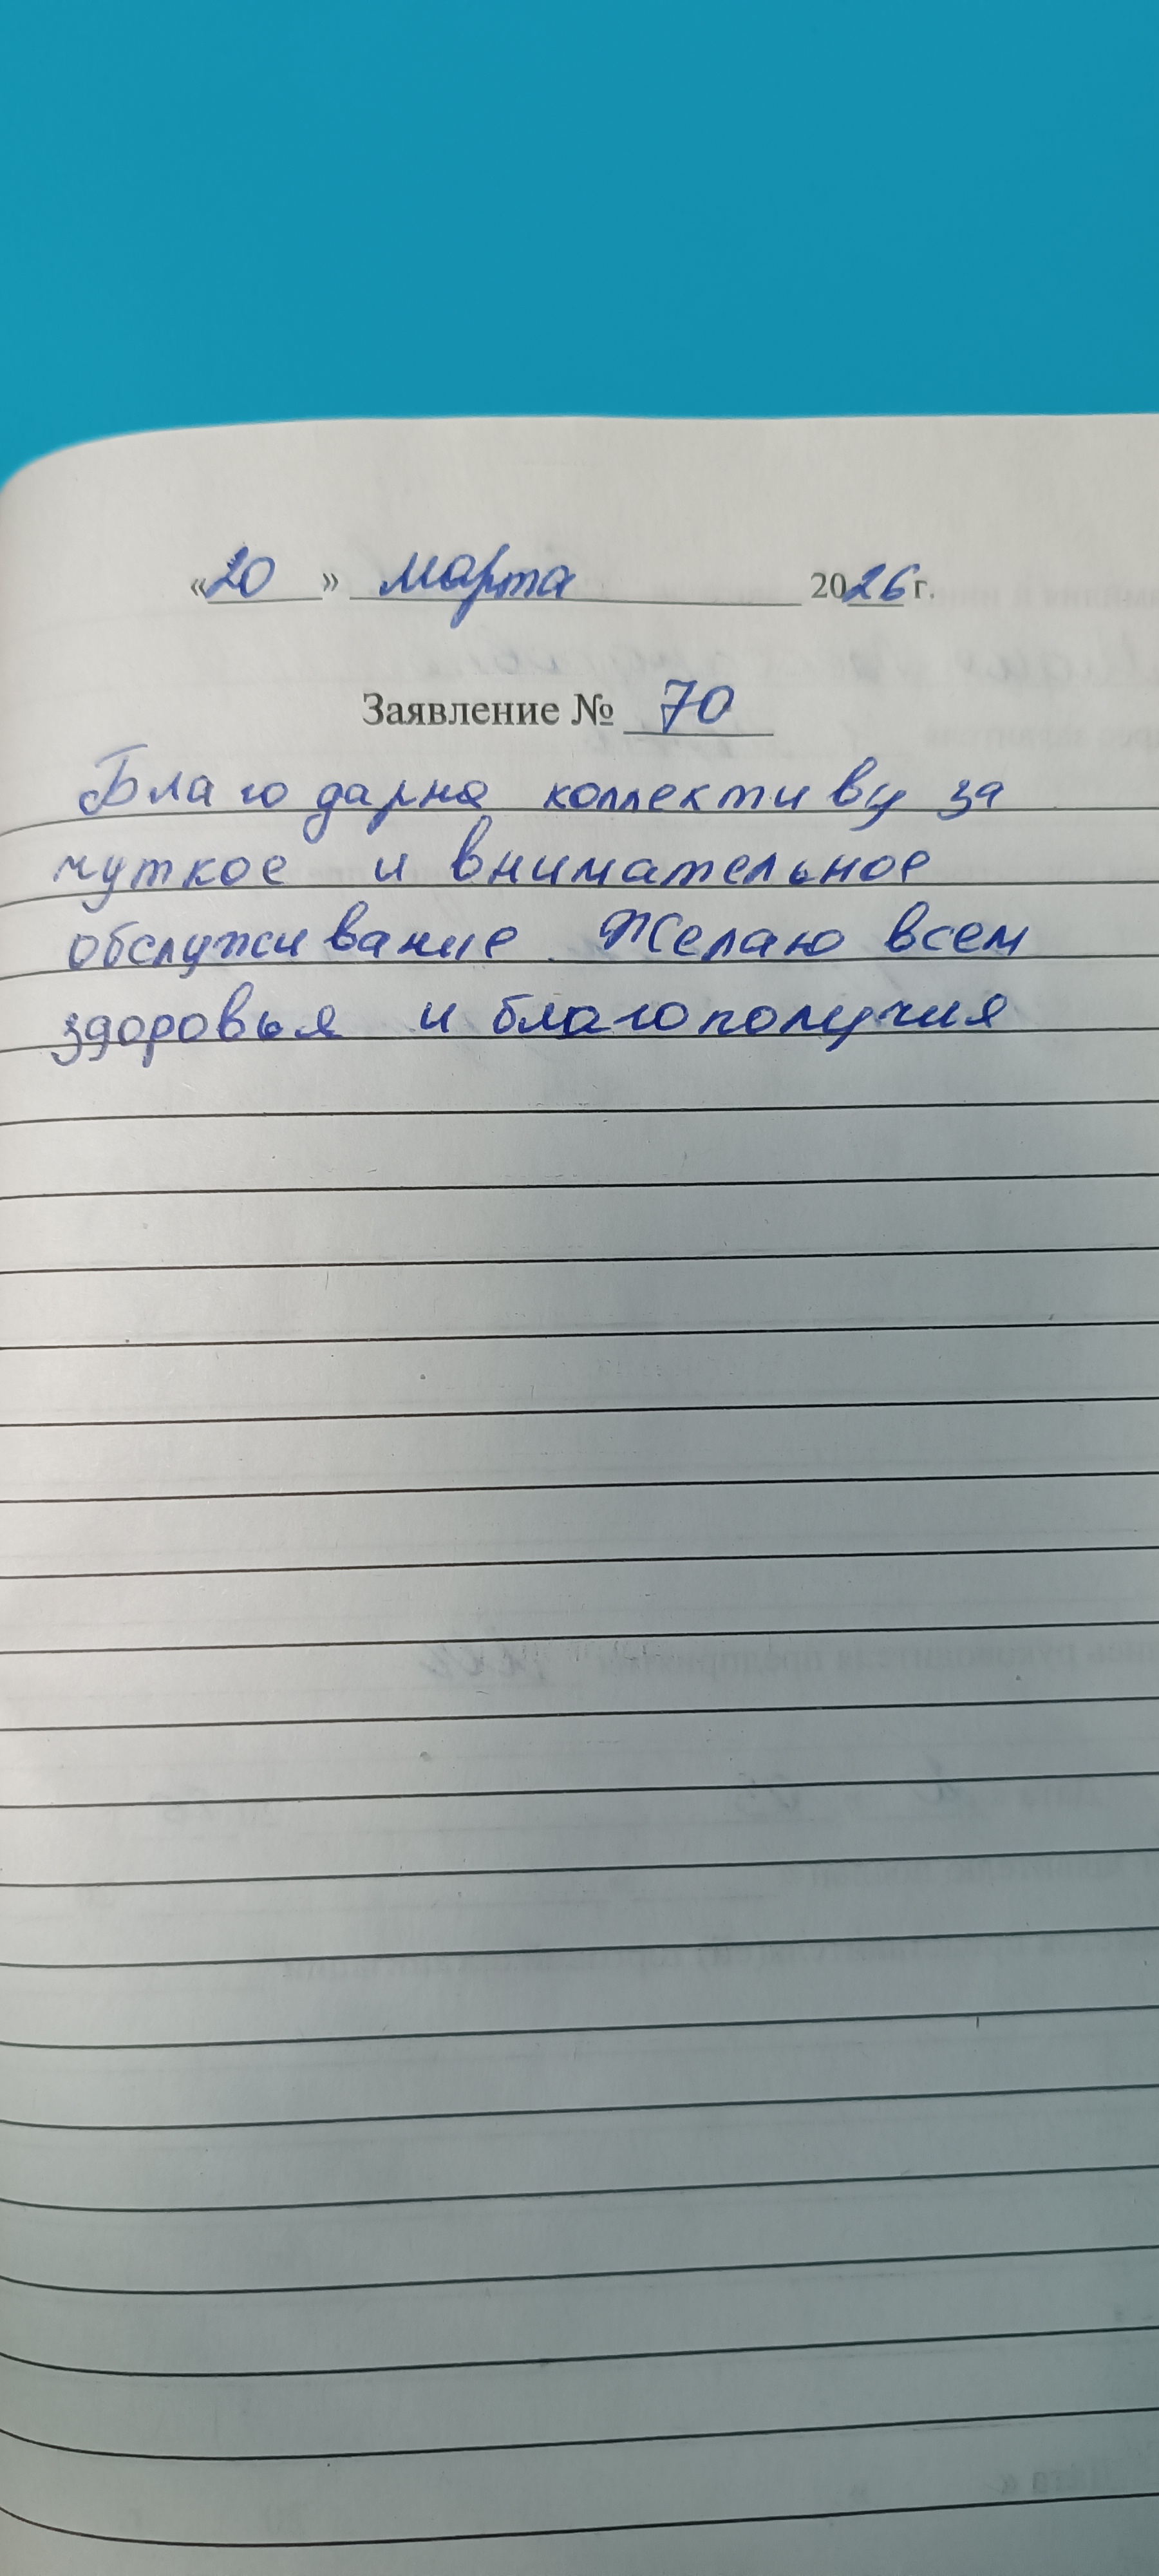 «20» марта 2026 г.
Заявление № 70
Благодарна коллективу за
чуткое и внимательное
обслуживание. Желаю всем
здоровья и благополучия